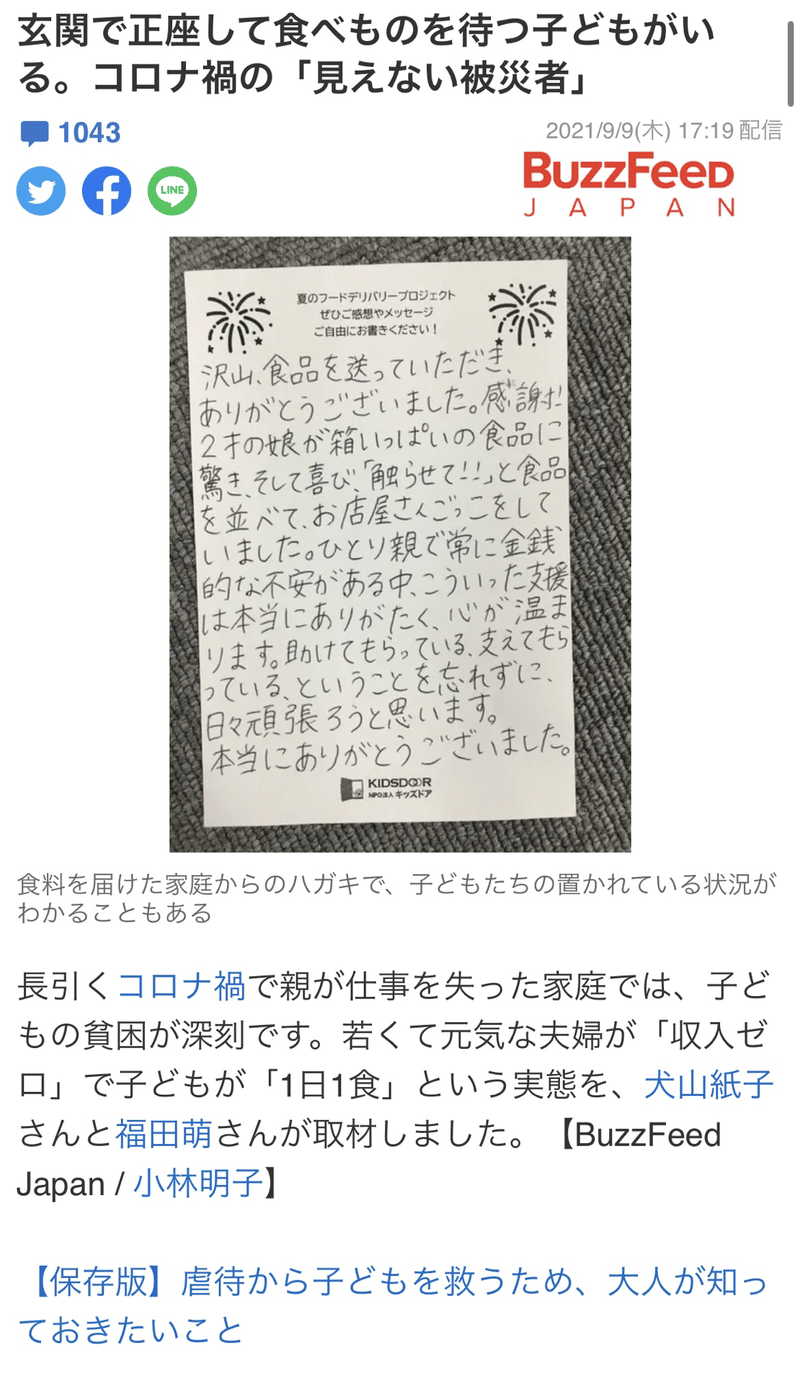 玄関で正座して食べものを待つ子どもがい
る。コロナ禍の「見えない被災者」
1043
2021/9/9(木) 17:19 配信
LINE
BuzzFeed
JAPAN
夏のフードデリバリープロジェクト
ぜひご感想やメッセージ
ご自由にお書きください！
沢山、食品を送っていただき、
ありがとうございました。感謝です!
2才の娘が箱いっぱいの食品に
驚き、そして喜び、「触らせて!!」と食品
を並べて、お店屋さんごっこをして
いました。ひとり親で常に金銭
的な不安がある中、こういった支援
は本当にありがたく、心が温ま
ります。助けてもらっている、支えてもら
っている、ということを忘れずに、
日々頑張ろうと思います。
本当にありがとうございました。
KIDSDOOR
NPO法人 キッズドア
食料を届けた家庭からのハガキで、子どもたちの置かれている状況が
わかることもある
長引くコロナ禍で親が仕事を失った家庭では、子ど
もの貧困が深刻です。若くて元気な夫婦が「収入ゼ
ロ」で子どもが「1日1食」という実態を、犬山紙子
さんと福田萌さんが取材しました。【BuzzFeed
Japan / 小林明子】
【保存版】虐待から子どもを救うため、大人が知っ
ておきたいこと